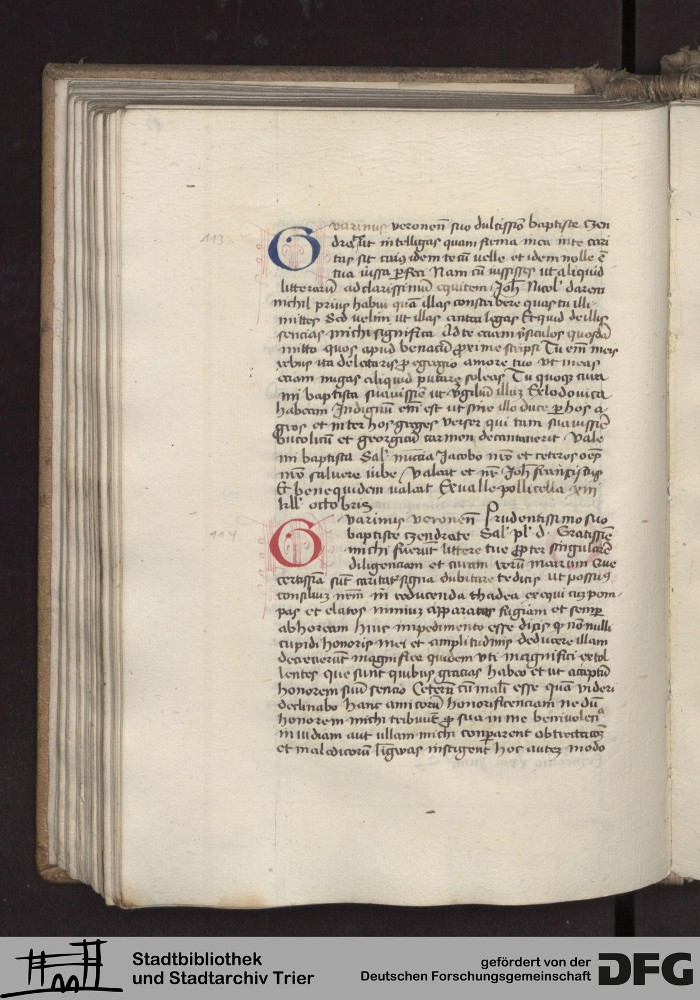 113
Guarinus veronen̄ suo dulcissīo baptiste czen
drate ut intelligas quam firma mea in te cari
tas sit cuiꝯ idem tecū uelle et idem nolle ē
tua iussa ꝑfeci Nam cū iussisses ut aliquid
litterarū ad clarissimū equitem Joh' Nicol' darem
nichil prius habui quā illas conscribere quas tu illi
mittes Sed uelim ut illas antea legas Et quid de illis
sencias michi significa Ad te eciam ꝟsiculos quosdā
mitto quos apud benacū ꝓxime scripsi Tu em̄ meis
rebus ita delectaris ꝓ egregio amore tuo ut meas
eciam nugas aliquid putare soleas Tu quoqꝫ cura
mi baptista suauissīe ut ꝟgiliū illuꝫ Exlodouica
habeam Indignū em̄ est ut sine illo duce ꝑ hos a
gros et inter hos greges verser qui tam suauissīe
bucolicū et georgicū carmen decantauerit Vale
mi baptista Sal' nuncia Jacobo nr̄o et ceteros oēs
nr̄os saluere iube Valeat et nr̄ Joh' francistus
Et bene quidem ualeat Ex ualle pollicella xiii
kl' octobris
114
Guarinus veronen̄ Prudentissimo suo
baptiste czendrate Sal' pl' d' Gratissīe
michi fuerūt littere tue ꝓpter singularē
diligenciam et curam rerū mearum Que
certissīa sūt caritatꝭ signa dubitare te dicis ut possuꝫ
consiliuꝫ meū in educenda thadea exequi cuꝫ pom-
pas et elatos nimiuꝫ apparatus fugiam et semꝑ
abhoream huic impedimento esse dicis qꝫ nonnulli
cupidi honoris mei et amplitudinis deducere illam
decreuerūt magnifice quidem uti magnifici extol
lentes que sunt quibus gracias habeo et ut acceptū
honorem suū sencio Ceterū cū malī esse quā uideri
declinabo hanc amicorū honorificenciam ne dū
honorem michi tribuūt ꝓ sua in me beniuolenᵃ
in uidiam aut ullam michi comparent obtrectacōꝫ
et maledicorū līgwas instigent hoc auteꝫ modo
Stadtbibliothek
und Stadtarchiv Trier
gefördert von der
Deutschen Forschungsgemeinschaft
DFG